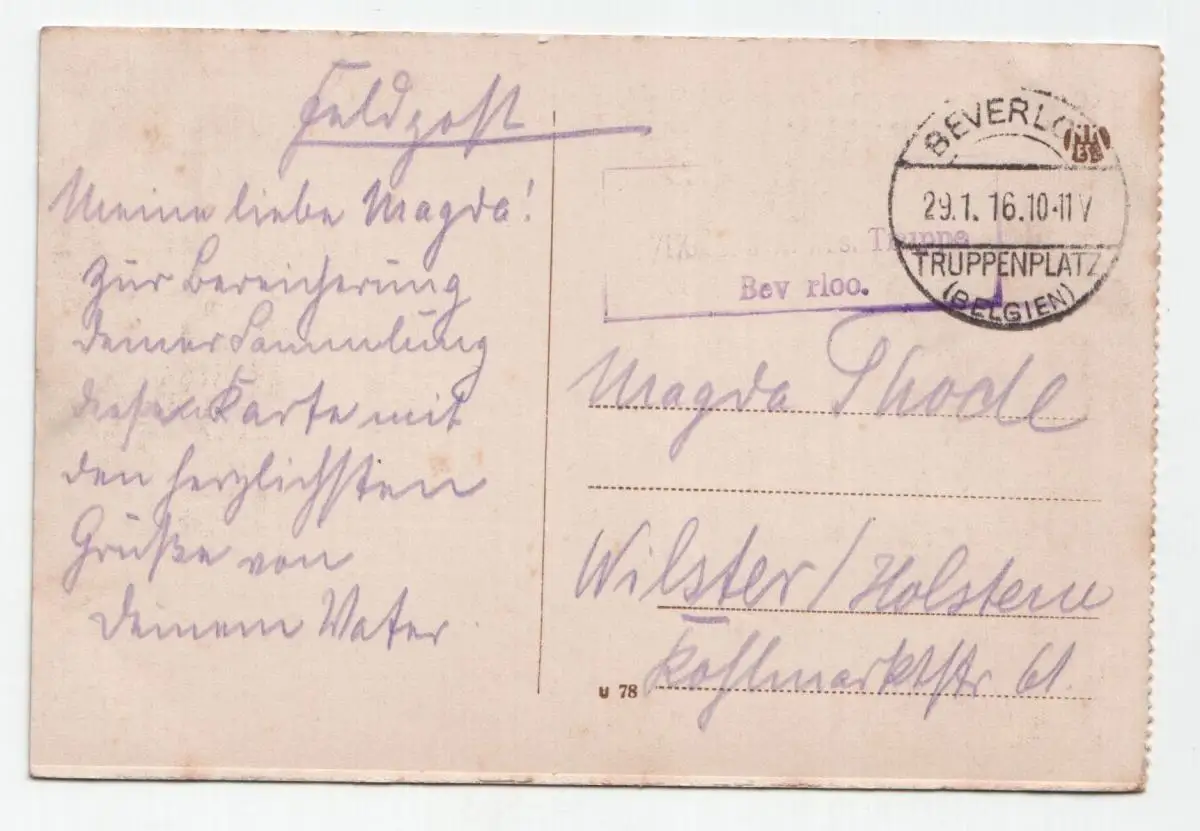 Feldpost
Meine liebe Magda!
Zur Bereicherung
deiner Sammlung
diesen Karte mit
den herzlichsten
Grüße von
deinem Vater
BEVERLOO
29.1.16.10-11V
TRUPPENPLATZ
(BELGIEN)
s. Truppe
Bev rloo.
Magda Thode
Wilster/Holstein
Kohlmarktstr 61.
U 78